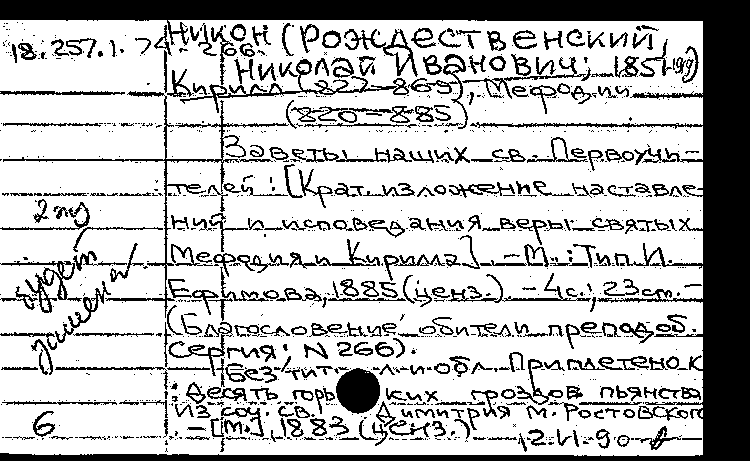 18.257.1.74-266.
Никон (Рождественский,
Николай Иванович; 1851-
Кирилл (827-869), Мефодий
(820-885)
Заветы наших св. Первоучи-
телей : [Крат. изложение наставле-
ний и исповедания веры святых
Мефодия и Кирилла]. - М. : Тип. И.
Ефимова, 1885 (ценз.). - 4с.; 23см. -
(Благословение обители преподоб.
Сергия; N 266).
Без тит. л. и обл. Приплетено к
: Десять горьких гроздов пьянства
Из соч. св. Димитрия М. Ростовского
. - [М.], 1883 (ценз.).
12.VI.90
2 экз
будет
заменён
6